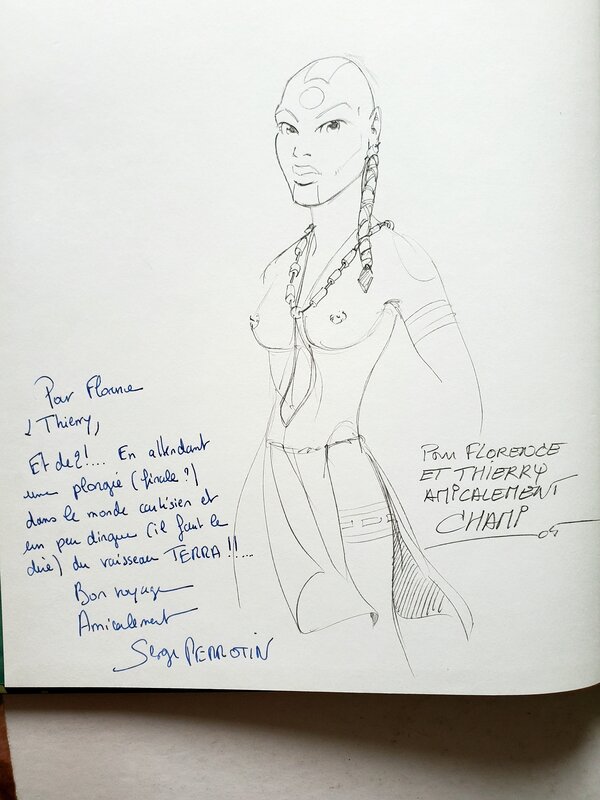 Pour Florence
& Thierry,
Et de 2!.... En attendant
une plongée (finale?)
dans le monde
un peu dingue (il faut le
dire) du vaisseau TERRA!!...
Bon voyage
Amicalement
Serge PERROTIN
Pour FLORENCE
ET THIERRY
AMICALEMENT
CHAMI
05